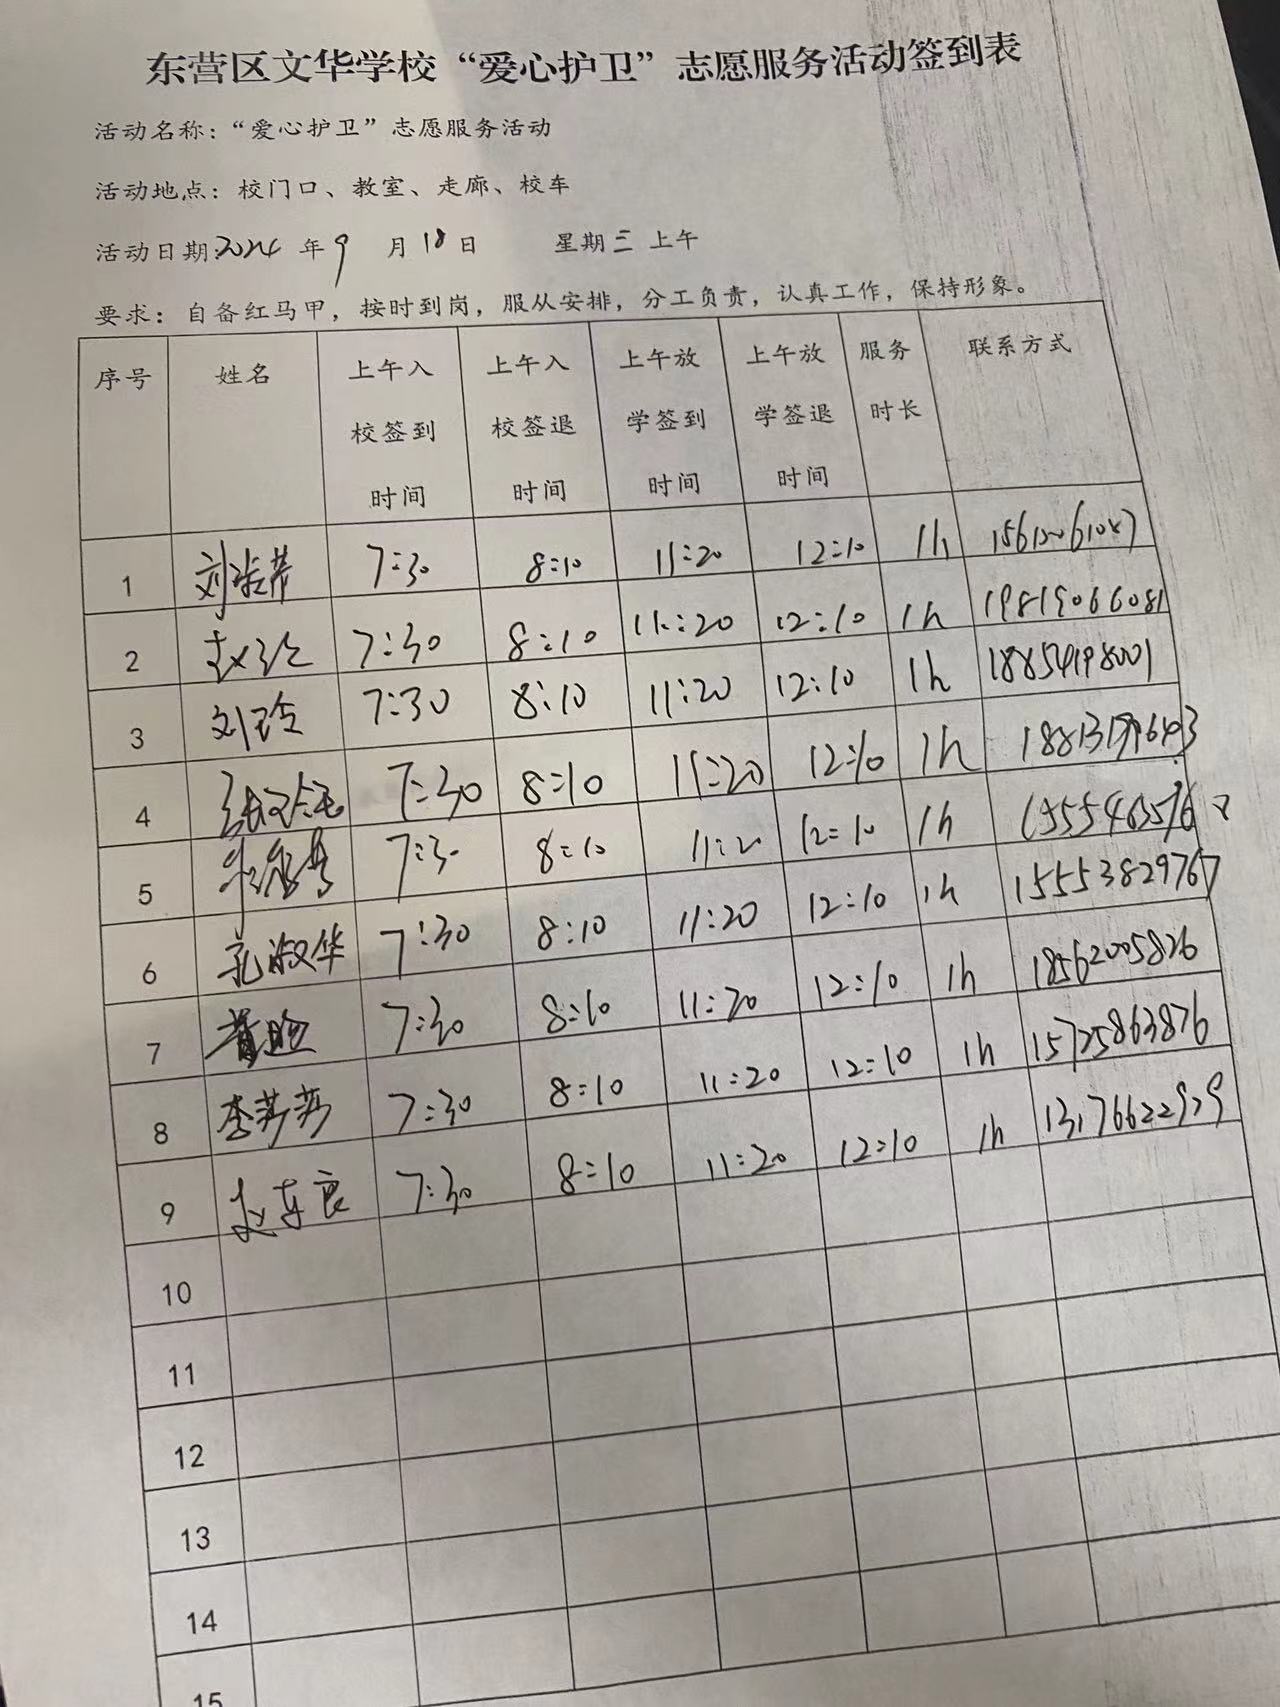 东营区文华学校“爱心护卫”志愿服务活动签到表
活动名称：“爱心护卫”志愿服务活动
活动地点：校门口、教室、走廊、校车
活动日期:2024 年 9 月 18 日 星期三 上午
要求：自备红马甲，按时到岗，服从安排，分工负责，认真工作，保持形象。
序号 姓名 上午入校签到时间 上午入校签退时间 上午放学签到时间 上午放学签退时间 服务时长 联系方式
1 7:30 8:10 11:20 12:10 1h
2 7:30 8:10 11:20 12:10 1h 19819066081
3 刘玲 7:30 8:10 11:20 12:10 1h 18854198001
4 7:30 8:10 11:20 12:10 1h
5 7:30 8:10 11:20 12:10 1h
6 孔淑华 7:30 8:10 11:20 12:10 1h 15553829767
7 7:30 8:10 11:20 12:10 1h 18562005826
8 李莎莎 7:30 8:10 11:20 12:10 1h 15725863876
9 7:30 8:10 11:20 12:10 1h 13176622929
10
11
12
13
14
15